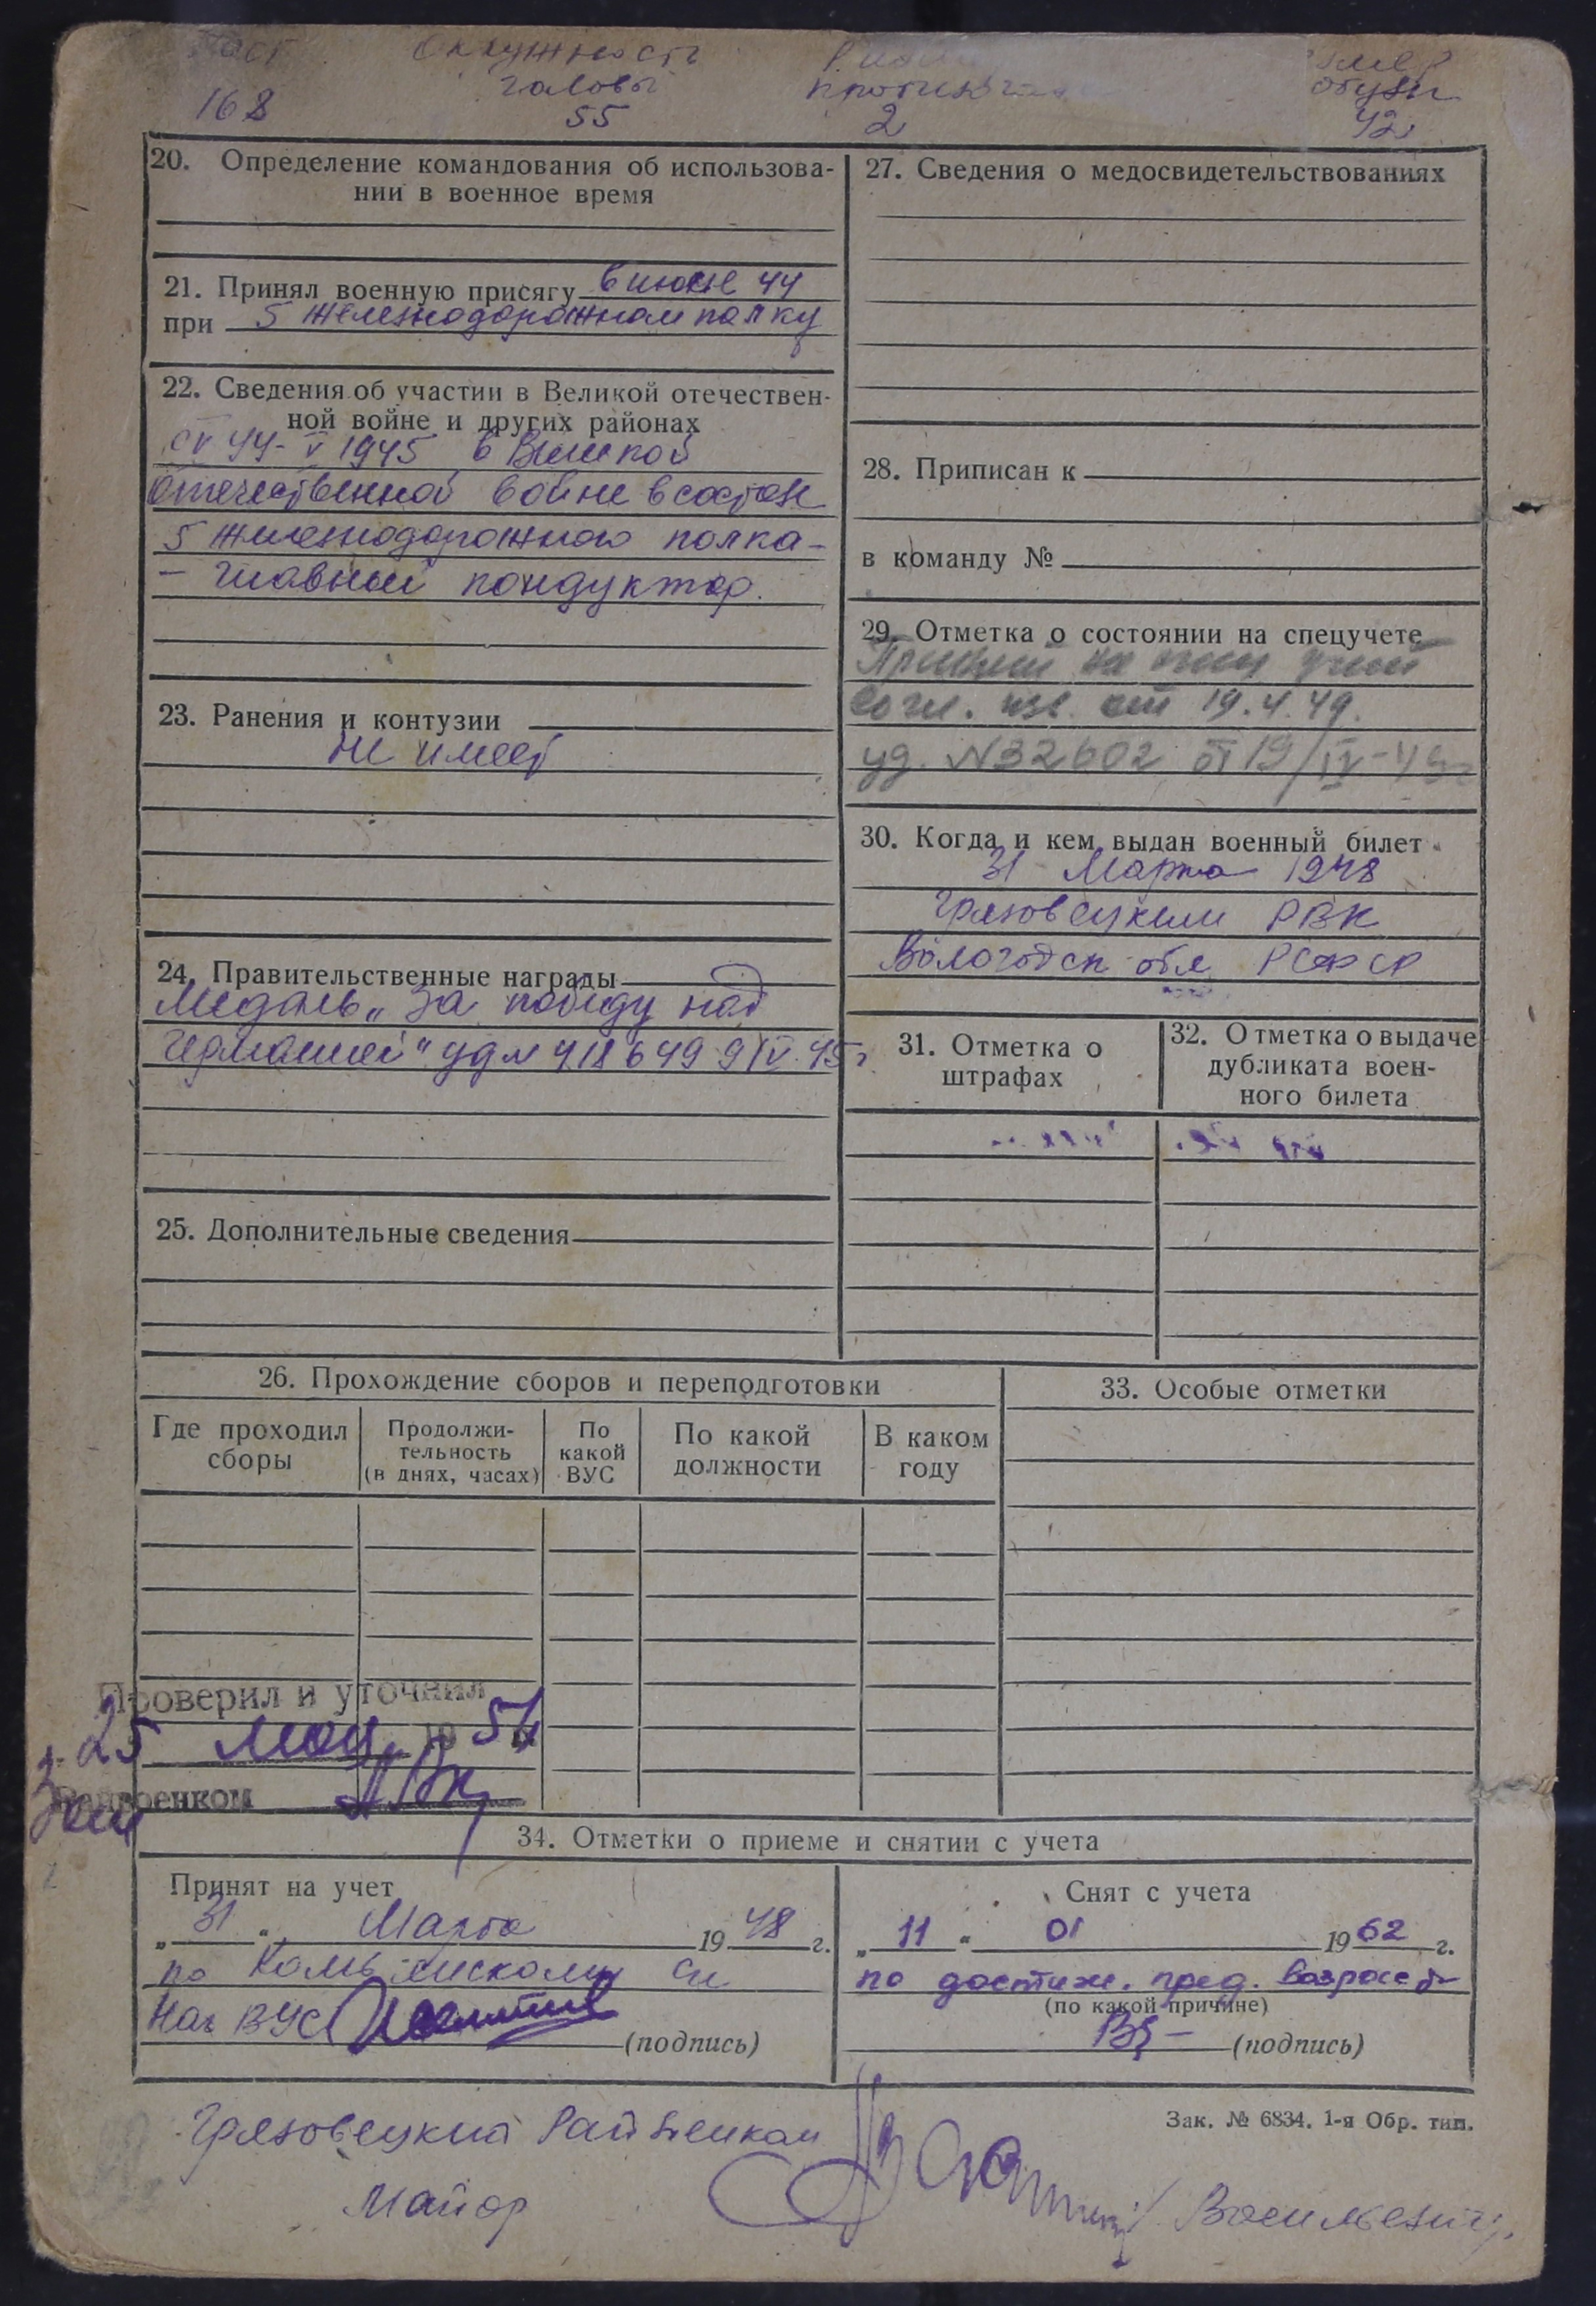 Рост Окружность
головы
168 55 2 42
обуви
20. Определение командования об использова-
нии в военное время
21. Принял военную присягу в июне 44
при 5 железнодорожном полку
22. Сведения об участии в Великой отечествен-
ной войне и других районах
с V 44 - V 1945 в Великой
отечественной войне в составе
5 железнодорожного полка -
- главный кондуктор.
23. Ранения и контузии
не имеет
24. Правительственные награды
Медаль „За победу над
Германией" уд № 418649 9/V 45 г
25. Дополнительные сведения
27. Сведения о медосвидетельствованиях
28. Приписан к
в команду №
29. Отметка о состоянии на спецучете
Принят на спец учет
согл. изв. от 19.4.49.
уд. N32602 от 19/IV-49г
30. Когда и кем выдан военный билет
31 Марта 1948
Грязовецким РВК
Вологодск обл РСФСР
31. Отметка о
штрафах
32. Отметка о выдаче
дубликата воен-
ного билета
26. Прохождение сборов и переподготовки
Где проходил
сборы
Продолжи-
тельность
(в днях, часах)
По
какой
ВУС
По какой
должности
В каком
году
33. Особые отметки
Проверил и уточнил
25 мая 1954
Зам Райвоенком
34. Отметки о приеме и снятии с учета
Принят на учет
„31" Марта 1948 г.
по
Нач ВУС
(подпись)
Снят с учета
„11" 01 1962 г.
по достиж. пред. возраста
(по какой причине)
(подпись)
Зак. № 6834. 1-я Обр. тип.
Грязовецкий Райвоенком
Майор